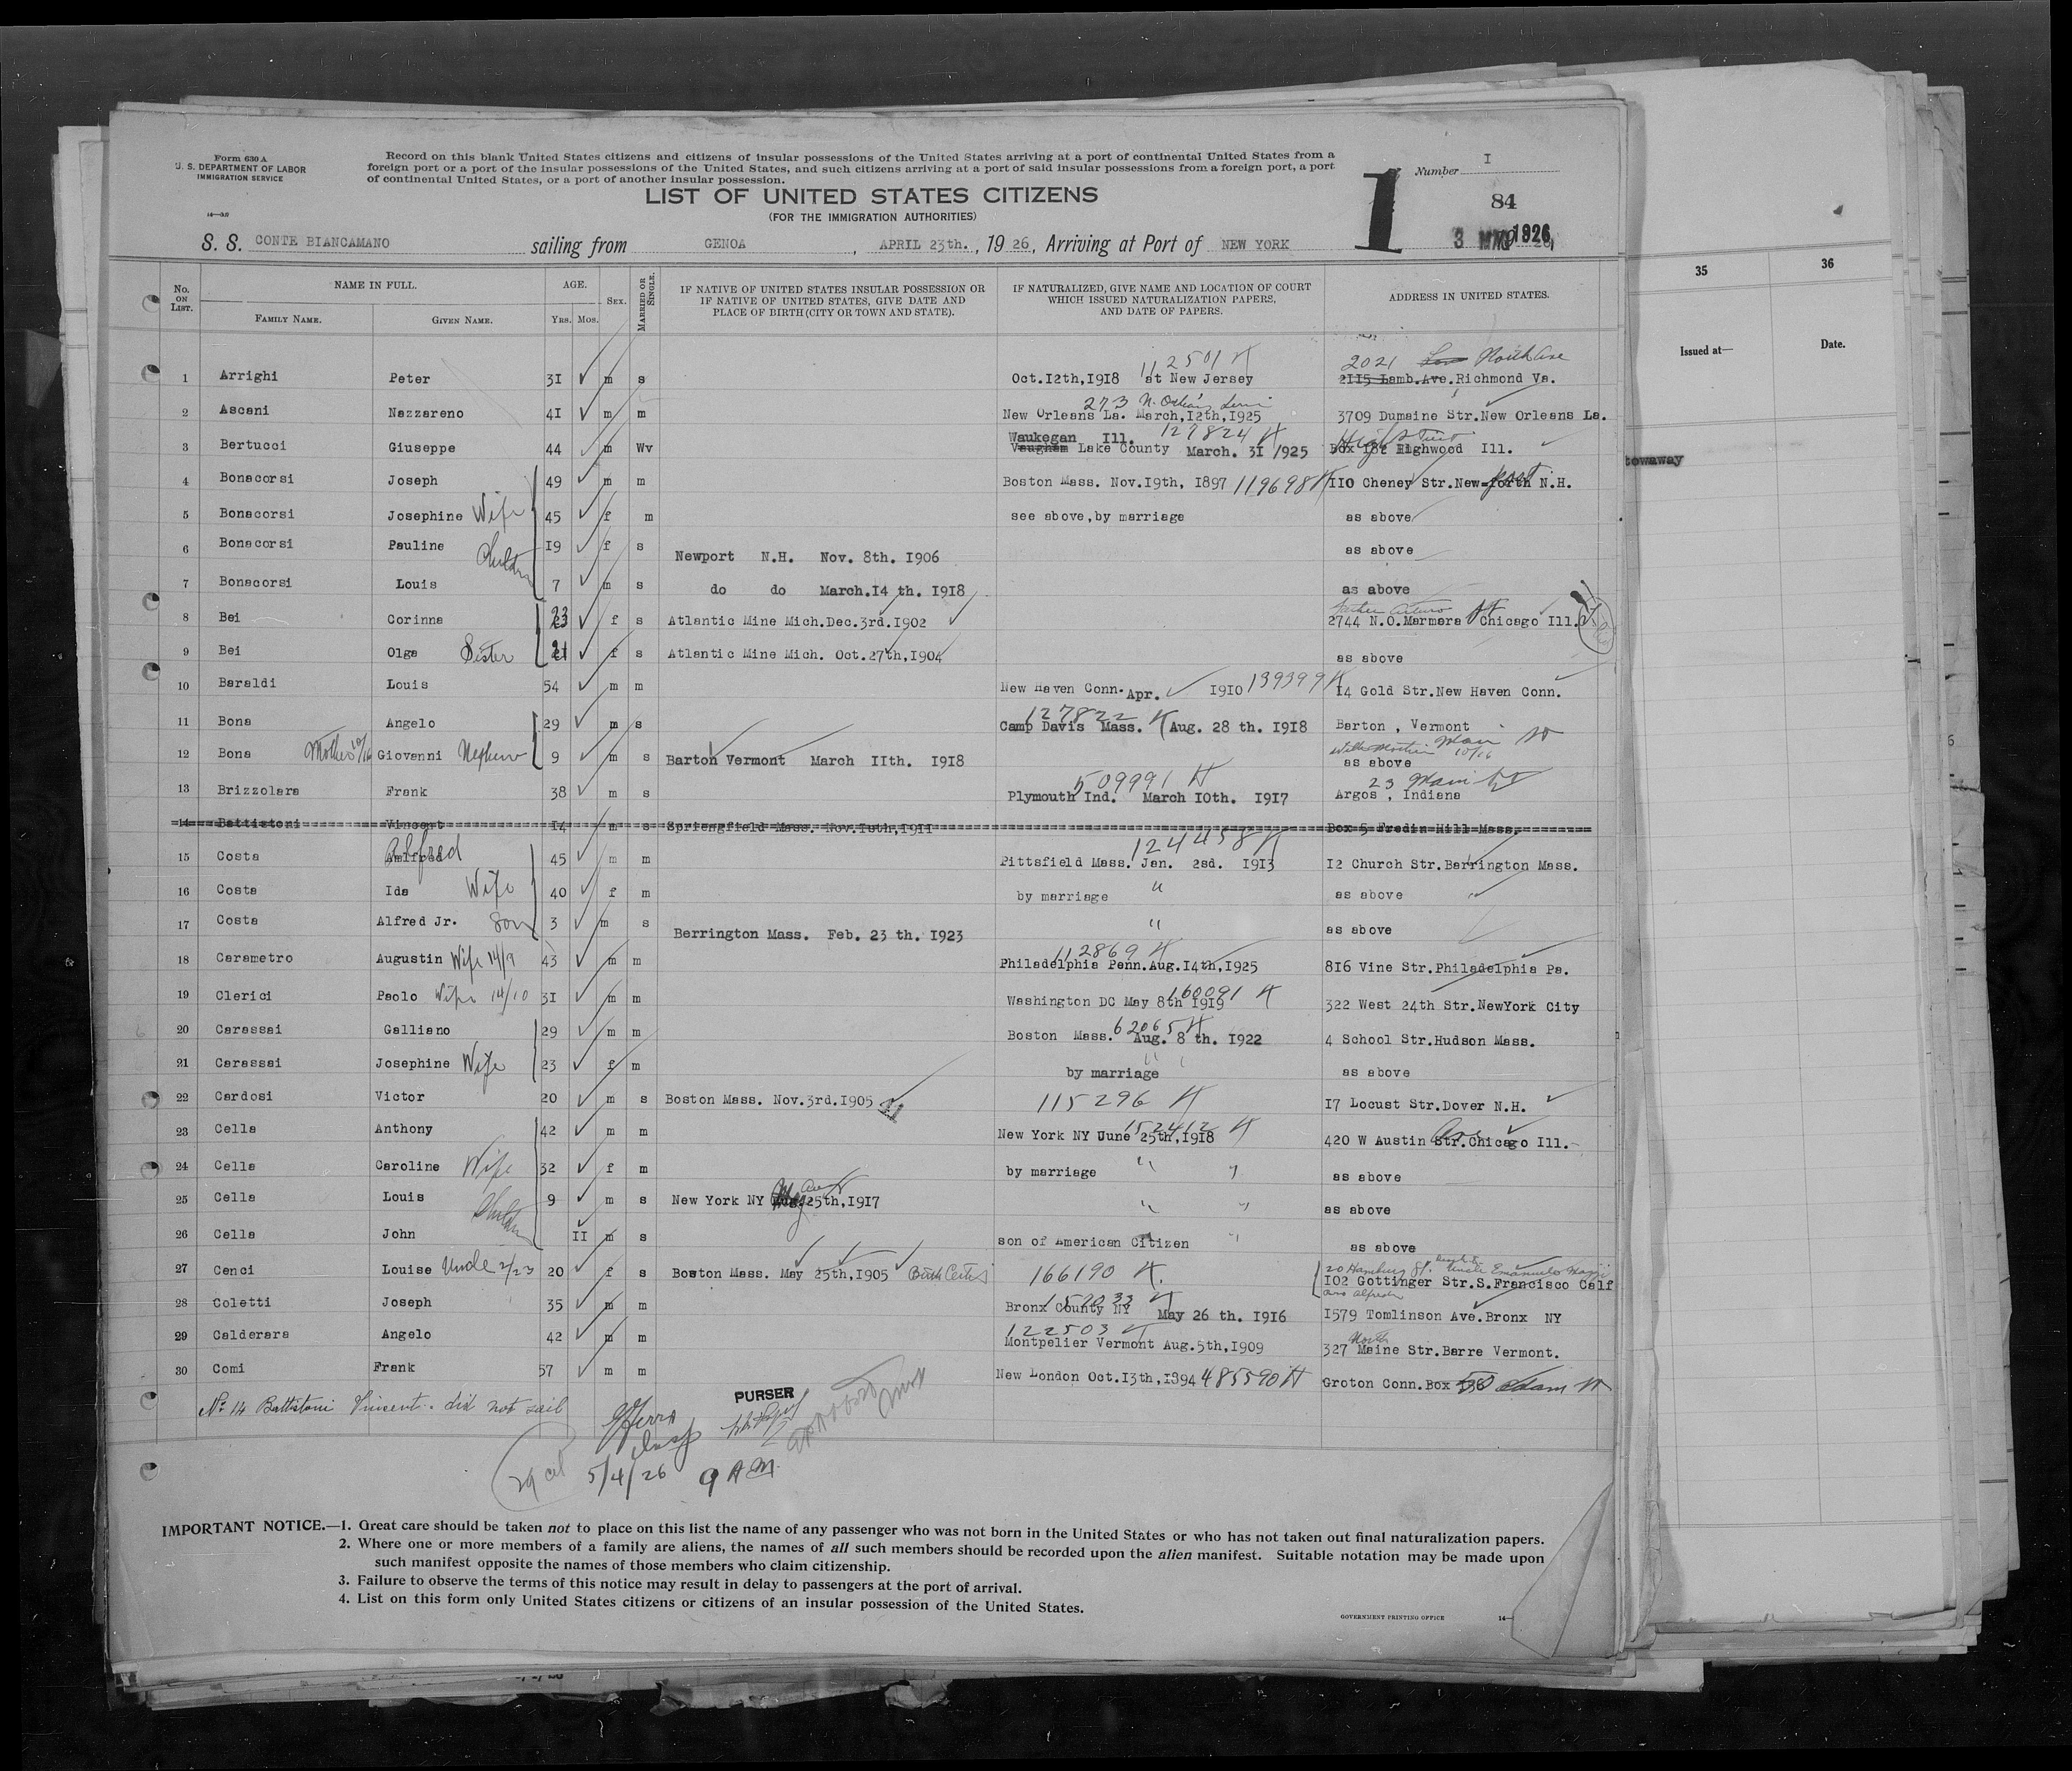 Form 630 A
U. S. DEPARTMENT OF LABOR
IMMIGRATION SERVICE
Record on this blank United States citizens and citizens of insular possessions of the United States arriving at a port of continental United States from a
foreign port or a port of the insular possessions of the United States, and such citizens arriving at a port of said insular possessions from a foreign port, a port
of continental United States, or a port of another insular possession.
LIST OF UNITED STATES CITIZENS
(FOR THE IMMIGRATION AUTHORITIES)
1 Number I
84
S. S. CONTE BIANCAMANO sailing from GENOA, APRIL 23th., 1926, Arriving at Port of NEW YORK
3 1926
No. ON LIST. NAME IN FULL. AGE. SEX. MARRIED OR SINGLE. IF NATIVE OF UNITED STATES INSULAR POSSESSION OR IF NATIVE OF UNITED STATES, GIVE DATE AND PLACE OF BIRTH (CITY OR TOWN AND STATE). IF NATURALIZED, GIVE NAME AND LOCATION OF COURT WHICH ISSUED NATURALIZATION PAPERS, AND DATE OF PAPERS. ADDRESS IN UNITED STATES.
FAMILY NAME. GIVEN NAME. YRS. MOS.
35 36
Issued at— Date.
112501 2021 North Ave
1 Arrighi Peter 31 m s Oct.12th,1918 at New Jersey 2115 Lamb.Ave.Richmond Va.
273
2 Ascani Nazzareno 41 m m New Orleans La. March,12th,1925 3709 Dumaine Str.New Orleans La.
Waukegan Ill. 127824
3 Bertucci Giuseppe 44 m Wv Vaugham Lake County March. 31 /1925 Box 182 Highwood Ill.
4 Bonacorsi Joseph 49 m m Boston Mass. Nov.19th, 1897 119698 110 Cheney Str.New-forth port N.H.
5 Bonacorsi Josephine Wife 45 f m see above,by marriage as above
6 Bonacorsi Pauline 19 f s Newport N.H. Nov. 8th. 1906 as above
7 Bonacorsi Louis 7 m s do do March.14 th. 1918 as above
8 Bei Corinna 23 f s Atlantic Mine Mich.Dec.3rd.1902 2744 N.O.Marmara Chicago Ill.
9 Bei Olga Sister 21 f s Atlantic Mine Mich. Oct.27th,1904 as above
10 Baraldi Louis 54 m m New Haven Conn. Apr. 1910 139399 14 Gold Str.New Haven Conn.
127822
11 Bona Angelo 29 m s Camp Davis Mass. Aug. 28 th. 1918 Barton , Vermont
12 Bona Mother 10/16 Giovanni Nephew 9 m s Barton Vermont March 11th. 1918 Main St as above
509991 23 Main St
13 Brizzolara Frank 38 m s Plymouth Ind. March 10th. 1917 Argos , Indiana
14 Battistoni Vincent 14 m s Springfield Mass. Nov.18th,1911 Box 5 Fredin Hill Mass.
Alfred 124458
15 Costa 45 m m Pittsfield Mass. Jan. 2sd. 1913 12 Church Str.Barrington Mass.
16 Costa Ida Wife 40 f m by marriage " as above
17 Costa Alfred Jr. Son 3 m s Berrington Mass. Feb. 23 th. 1923 " as above
112869
18 Carametro Augustin Wife 14/9 43 m m Philadelphia Penn.Aug.14th,1925 816 Vine Str.Philadelphia Pa.
160091
19 Clerici Paolo Wife 14/10 31 m m Washington DC May 8th 1919 322 West 24th Str.NewYork City
62065
20 Carassai Galliano 29 m m Boston Mass. Aug. 8 th. 1922 4 School Str.Hudson Mass.
21 Carassai Josephine Wife 23 f m by marriage as above
22 Cardosi Victor 20 m s Boston Mass. Nov.3rd.1905 115296 17 Locust Str.Dover N.H.
152412
23 Cella Anthony 42 m m New York NY June 25th,1918 420 W Austin Str. Ave Chicago Ill.
24 Cella Caroline Wife 32 f m by marriage " " as above
25 Cella Louis 9 m s New York NY 25th,1917 " " as above
26 Cella John II m s son of American Citizen " as above
27 Cenci Louise Uncle 2/23 20 f s Boston Mass. May 25th,1905 Birth Certif 166190 102 Gottinger Str.S.Francisco Calf
28 Coletti Joseph 35 m m Bronx County NY May 26 th. 1916 1579 Tomlinson Ave.Bronx NY
122503
29 Calderara Angelo 42 m m Montpelier Vermont Aug.5th,1909 327 North Maine Str.Barre Vermont.
30 Comi Frank 57 m m New London Oct.13th,1894 485590 Groton Conn.Box
No 14 Battistoni Vincent. did not sail
PURSER
5/4/26 9 AM.
IMPORTANT NOTICE.—1. Great care should be taken not to place on this list the name of any passenger who was not born in the United States or who has not taken out final naturalization papers.
2. Where one or more members of a family are aliens, the names of all such members should be recorded upon the alien manifest. Suitable notation may be made upon
such manifest opposite the names of those members who claim citizenship.
3. Failure to observe the terms of this notice may result in delay to passengers at the port of arrival.
4. List on this form only United States citizens or citizens of an insular possession of the United States.
GOVERNMENT PRINTING OFFICE 14—